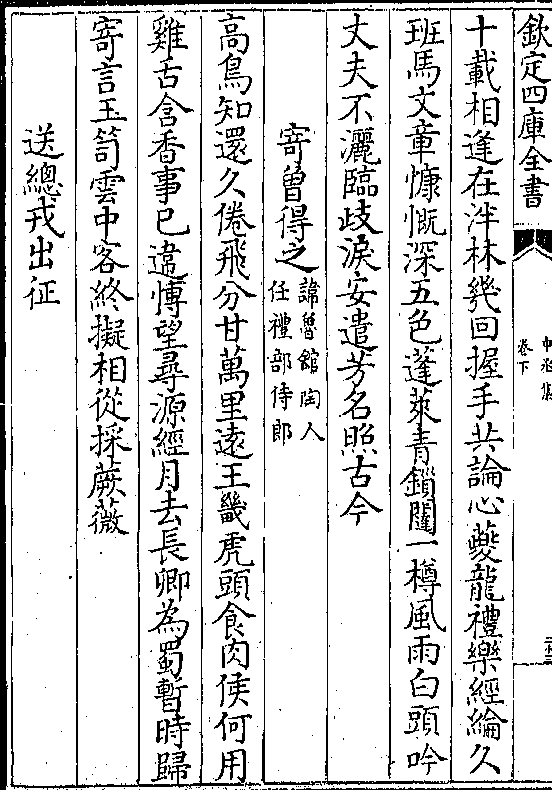 欽定四庫全書
卷下
十載相逢在泮林幾回握手共論心夔龍禮樂經綸久
班馬文章慷慨深五色蓬萊青鎖闥一樽風雨白頭吟
丈夫不灑臨歧淚安遣芳名照古今
寄曾得之
諱魯館陶人
任禮部侍郎
高鳥知還久倦飛分甘萬里逺王畿虎頭食肉侯何用
雞舌含香事已違愽望尋源經月去長卿為蜀暫時歸
寄言玉笥雲中客終擬相從採蕨薇
送總戎出征